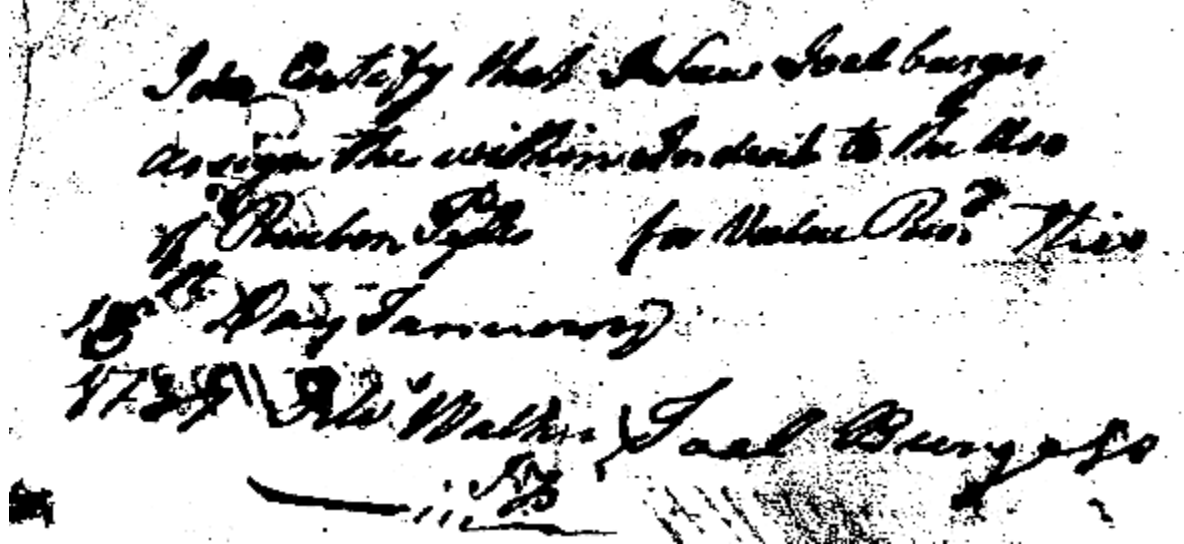 I do Certify that I Saw Joel burges
assign the within Indent to the Use
of Reubon for Value Recd This
18th Day Januerory
1787 Walker Joel Burgess